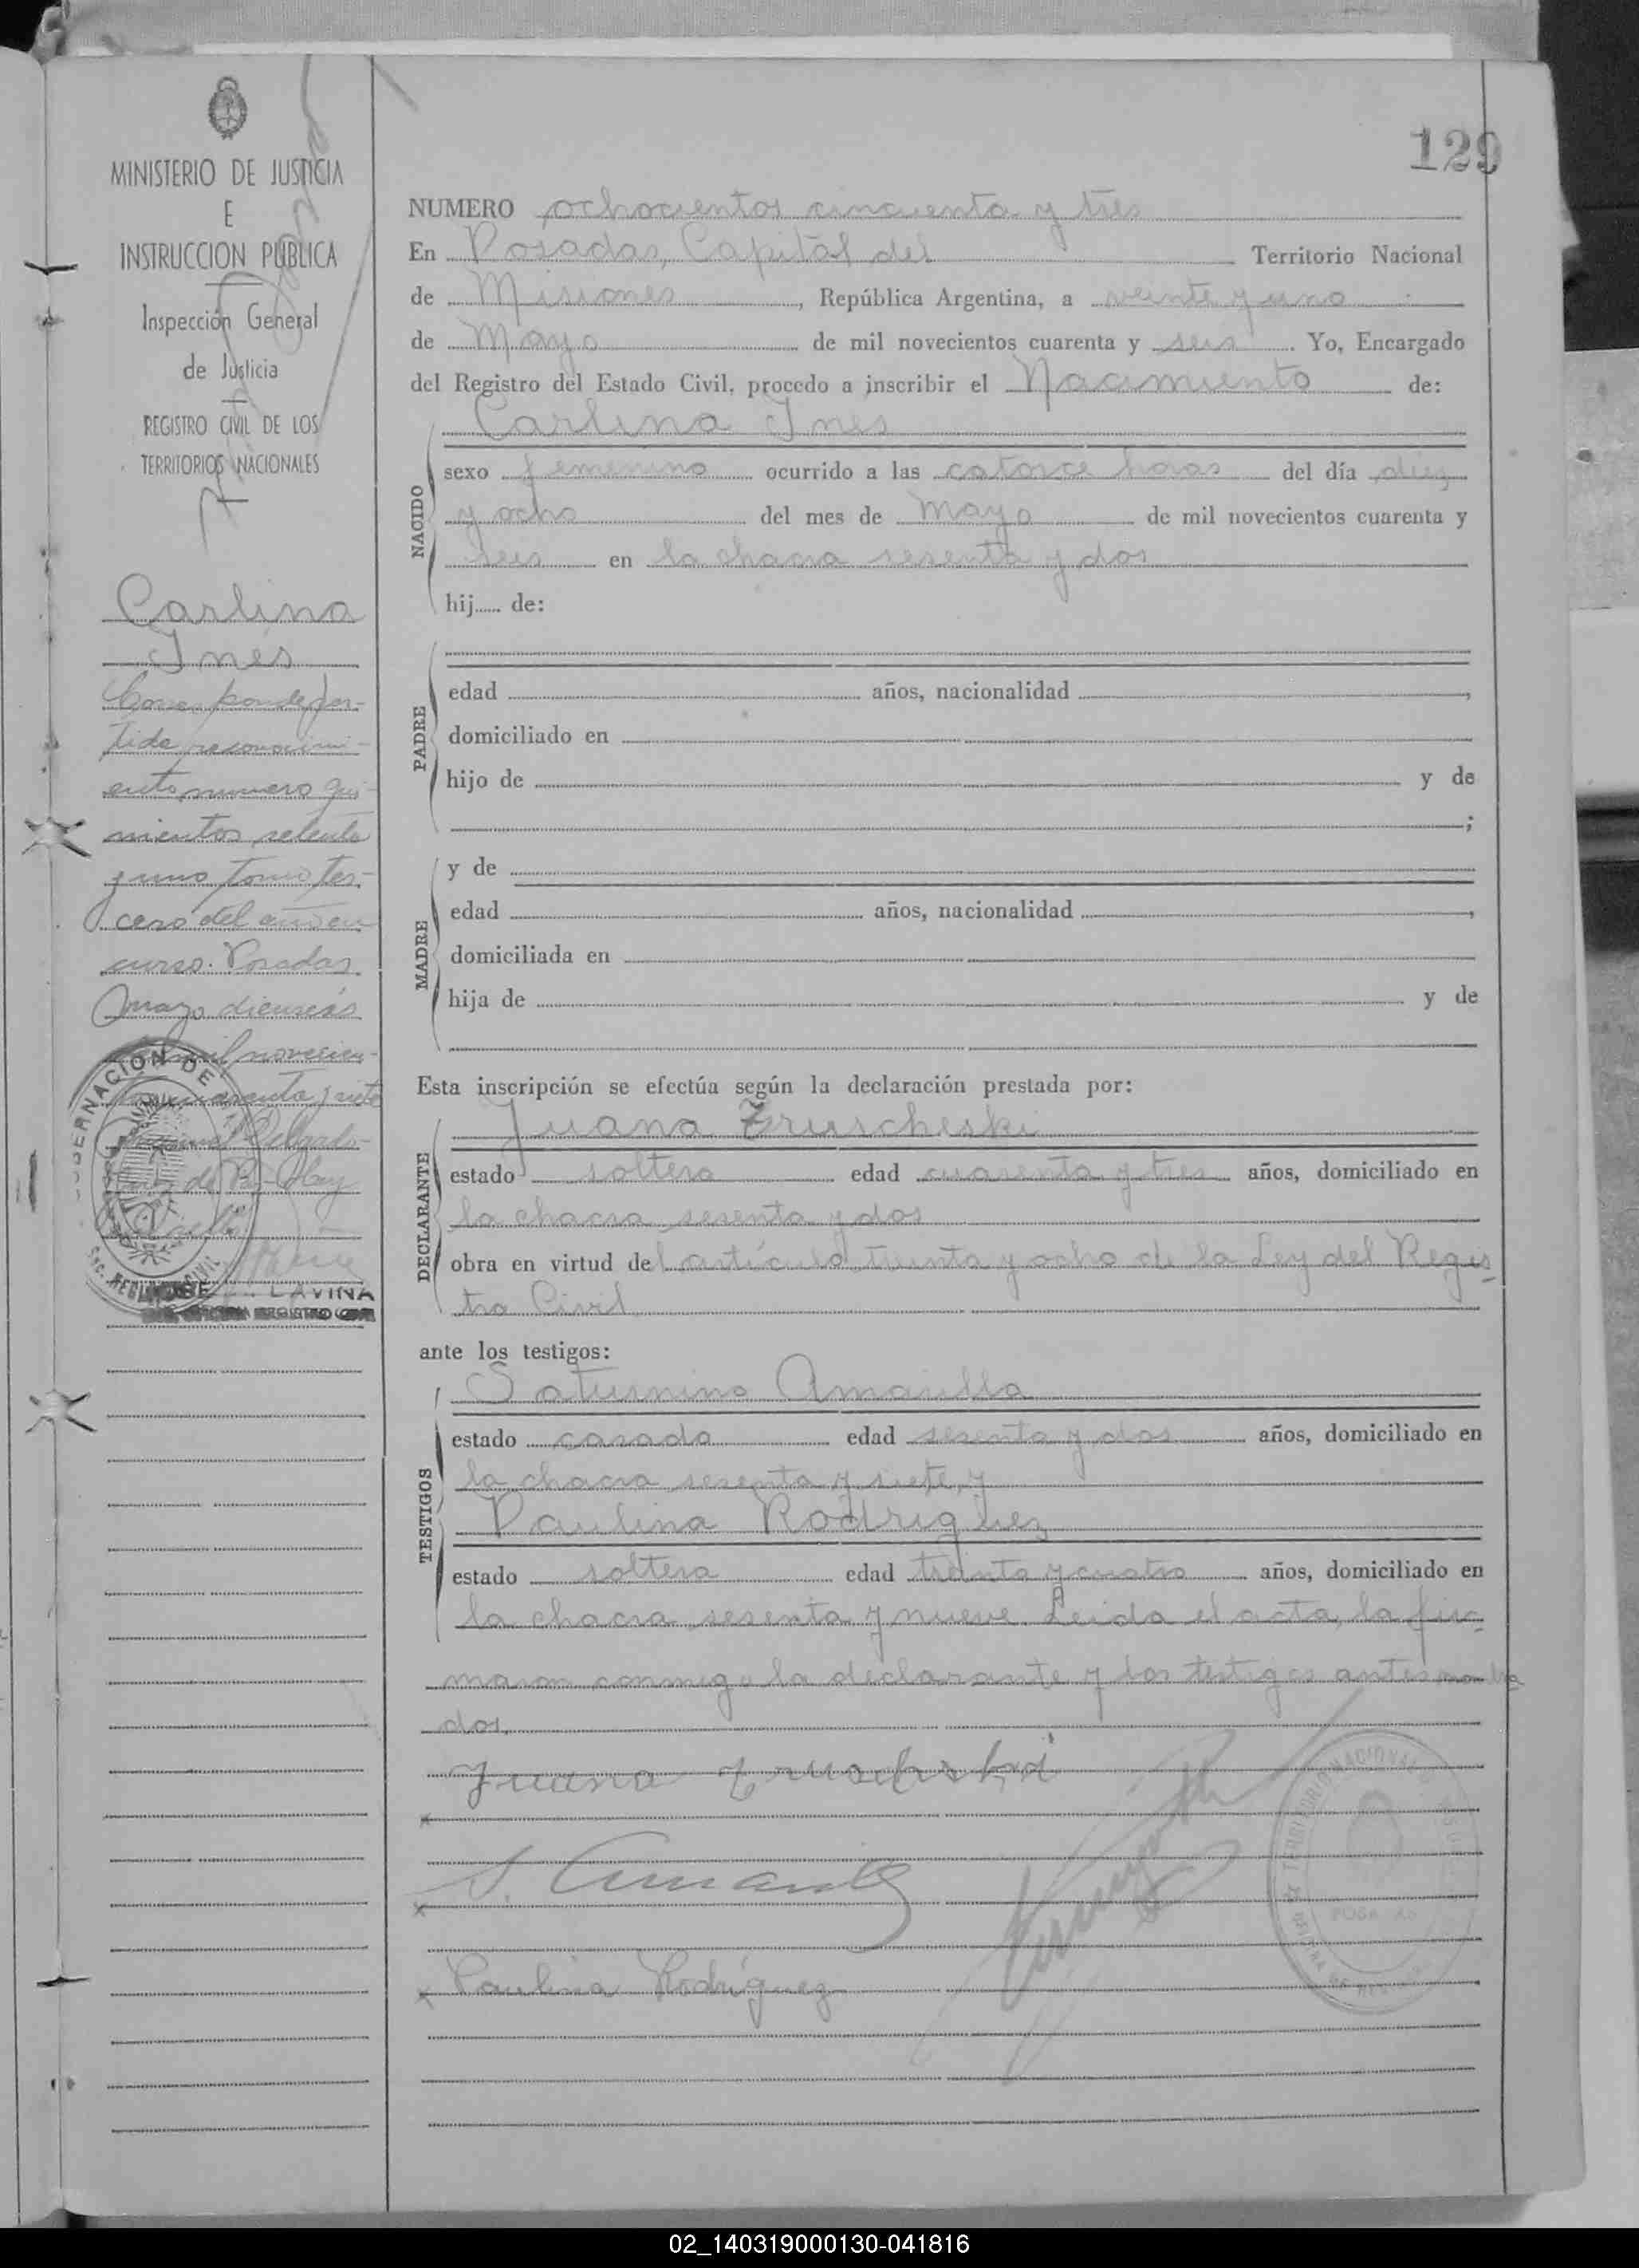 129
MINISTERIO DE JUSTICIA
E
INSTRUCCION PUBLICA
Inspección General
de Justicia
REGISTRO CIVIL DE LOS
TERRITORIOS NACIONALES
Carlina
Inés
Corresponde par-
tida reconocimi-
ento numero qui-
nientos setenta
y uno tomo ter-
cero del año en
curso. Posadas
mayo dieciseis
mil novecien-
cuarenta y siete
Delgado
GOBERNACION DE
REGISTRO CIVIL
JOSE LAVIÑA
NUMERO ochocientos cincuenta y tres
En Posadas, Capital del Territorio Nacional
de Misiones, República Argentina, a veinte y uno
de Mayo de mil novecientos cuarenta y seis. Yo, Encargado
del Registro del Estado Civil, procedo a inscribir el Nacimiento de:
Carlina Ines
NACIDO
sexo femenino ocurrido a las catorce horas del día diez
y ocho del mes de mayo de mil novecientos cuarenta y
seis en la chacra sesenta y dos
hij...... de:
PADRE
edad años, nacionalidad ,
domiciliado en
hijo de y de
;
MADRE
y de
edad años, nacionalidad ,
domiciliada en
hija de y de
Esta inscripción se efectúa según la declaración prestada por:
DECLARANTE
Juana Zruscheski
estado soltera edad cuarenta y tres años, domiciliado en
la chacra sesenta y dos
obra en virtud del artículo treinta y ocho de la Ley del Regis-
tro Civil
ante los testigos:
TESTIGOS
Saturnino Amarilla
estado casado edad sesenta y dos años, domiciliado en
la chacra sesenta y siete, y
Paulina Rodriguez
estado soltera edad treinta y cuatro años, domiciliado en
la chacra sesenta y nueve. Leida el acta, la fir-
maron conmigo la declarante y los testigos antes nombra
dos.
Juana
S. Amarilla
Paulina Rodriguez
TERRITORIO NACIONAL
POSADAS
02_140319000130-041816